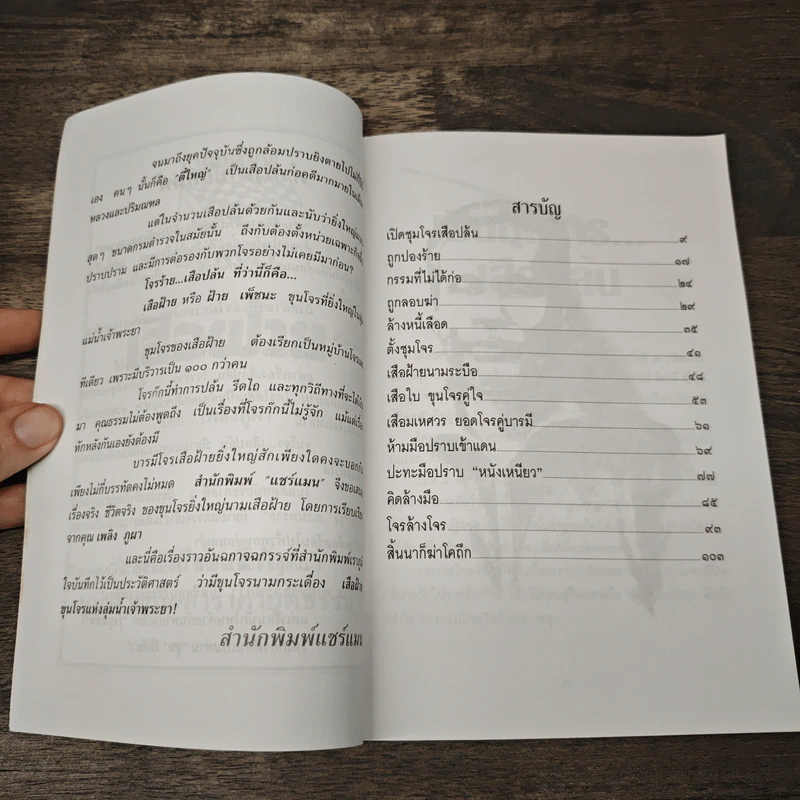 จนมาถึงยุคปัจจุบันซึ่งถูกล้อมปราบยิงตายไปไม่
เอง คนๆ นั้นก็คือ "ตี๋ใหญ่" เป็นเสือปล้นก่อคดีมากมายใน
หลวงและปริมณฑล
แต่ในจำนวนเสือปล้นด้วยกันและนับว่ายิ่งใหญ่
สุดๆ ขนาดกรมตำรวจในสมัยนั้น ถึงกับต้องตั้งหน่วยเฉพาะกิจ
ปราบปราม และมีการต่อรองกับพวกโจรอย่างไม่เคยมีมาก่อน?
โจรร้าย...เสือปล้น ที่ว่านี้ก็คือ...
เสือฝ้าย หรือ ฝ้าย เพ็ชนะ ขุนโจรที่ยิ่งใหญ่ใน
แม่น้ำเจ้าพระยา
ชุมโจรของเสือฝ้าย ต้องเรียกเป็นหมู่บ้านโจร
ทีเดียว เพราะมีบริวารเป็น ๑๐๐ กว่าคน
โจรก๊กนี้ทำการปล้น รีดไถ และทุกวิถีทางที่จะได้
มา คุณธรรมไม่ต้องพูดถึง เป็นเรื่องที่โจรก๊กนี้ไม่รู้จัก แม้แต่
หักหลังกันเองยังต้องมี
บารมีโจรเสือฝ้ายยิ่งใหญ่สักเพียงใดคงจะบอก
เพียงไม่กี่บรรทัดคงไม่หมด สำนักพิมพ์ "แชร์แมน" จึงขอ
เรื่องจริง ชีวิตจริง ของขุนโจรยิ่งใหญ่นามเสือฝ้าย โดยการเรียบเรียง
จากคุณ เพลิง ภูผา
และนี่คือเรื่องราวอันฉกาจฉกรรจ์ที่สำนักพิมพ์เรา
ใจบันทึกไว้เป็นประวัติศาสตร์ ว่ามีขุนโจรนามกระเดื่อง เสือฝ้าย
ขุนโจรแห่งลุ่มน้ำเจ้าพระยา!
สำนักพิมพ์แชร์แมน
สารบัญ
เปิดชุมโจรเสือปล้น ๙
ถูกปองร้าย ๑๗
กรรมที่ไม่ได้ก่อ ๒๔
ถูกลอบฆ่า ๒๙
ล้างหนี้เลือด ๓๕
ตั้งชุมโจร ๔๑
เสือฝ้ายนามระบือ ๔๘
เสือใบ ขุนโจรคู่ใจ ๕๓
เสือมเหศวร ยอดโจรคู่บารมี ๖๑
ห้ามมือปราบเข้าแดน ๖๙
ปะทะมือปราบ "หนังเหนียว" ๗๗
คิดล้างมือ ๘๕
โจรล้างโจร ๙๓
สิ้นนาก็ฆ่าโคถึก ๑๐๓